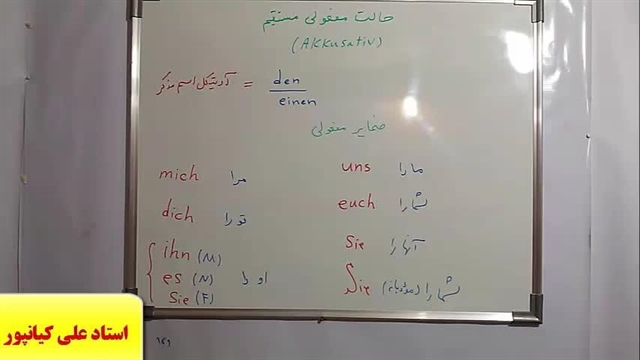 حالت مفعولی مستقیم
(Akkusativ)
آرتیکل اسم مذکر = den
einen
ضمایر مفعولی
mich مرا
uns ما را
dich تو را
euch شما را
ihn (M)
es (N) او را
Sie (F)
Sie آنها را
Sie شما را (مؤدبانه)
استاد علی کیانپور